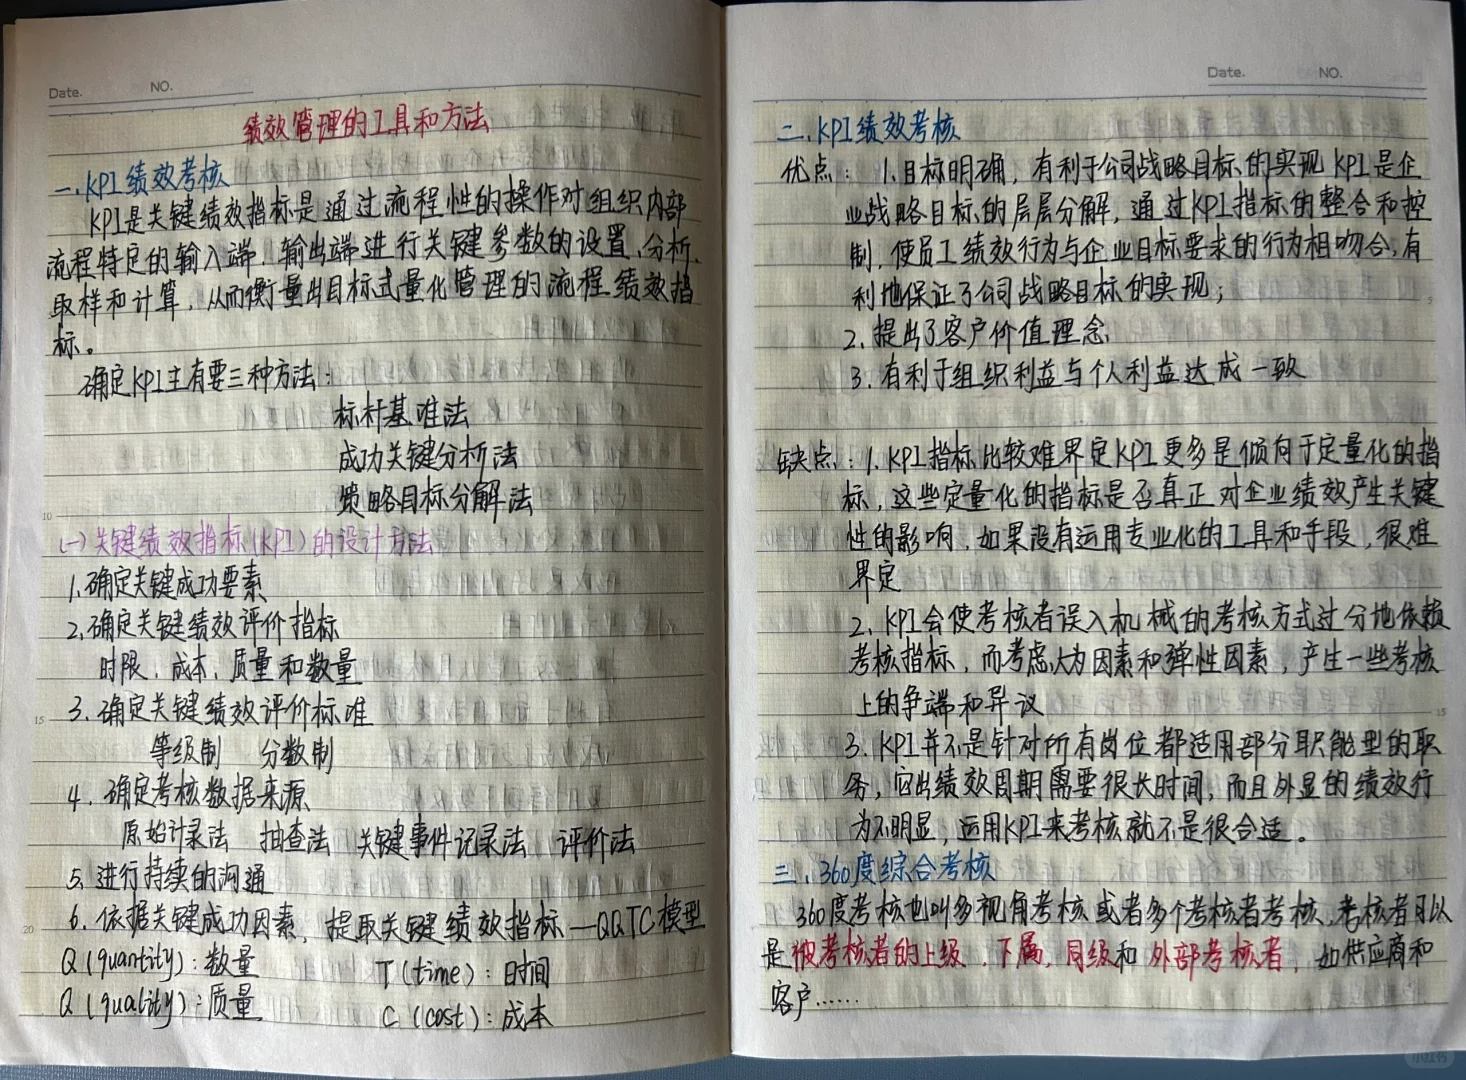 Date.
NO.
绩效管理的工具和方法
一.KPI绩效考核
KPI是关键绩效指标是通过流程性的操作对组织内部
流程特定的输入端、输出端进行关键参数的设置、分析、
取样和计算，从而衡量出目标式量化管理的流程绩效指
标。
确定KPI主有要三种方法：
标杆基准法
成功关键分析法
策略目标分解法
(一)关键绩效指标(KPI)的设计方法
1.确定关键成功要素
2.确定关键绩效评价指标
时限、成本、质量和数量
3.确定关键绩效评价标准
等级制 分数制
4.确定考核数据来源
原始计录法 抽查法 关键事件记录法 评价法
5.进行持续的沟通
6.依据关键成功因素，提取关键绩效指标—QQTC模型
Q(quantity):数量 T(time):时间
Q(quality):质量 C(cost):成本
Date.
NO.
二.KPI绩效考核
优点：1.目标明确，有利于公司战略目标的实现KPI是企
业战略目标的层层分解，通过KPI指标的整合和控
制，使员工绩效行为与企业目标要求的行为相吻合，有
利地保证了公司战略目标的实现；
2.提出了客户价值理念
3.有利于组织利益与个人利益达成一致
缺点：1.KPI指标比较难界定KPI更多是倾向于定量化的指
标，这些定量化的指标是否真正对企业绩效产生关键
性的影响，如果没有运用专业化的工具和手段，很难
界定
2.KPI会使考核者误入机械的考核方式过分地依赖
考核指标，而考虑人为因素和弹性因素，产生一些考核
上的争端和异议
3.KPI并不是针对所有岗位都适用部分职能型的职
务，它出绩效周期需要很长时间，而且外显的绩效行
为不明显，运用KPI来考核就不是很合适。
三.360度综合考核
360度考核也叫多视角考核或者多个考核者考核，考核者可以
是被考核者的上级、下属、同级和外部考核者，如供应商和
客户……
小红书